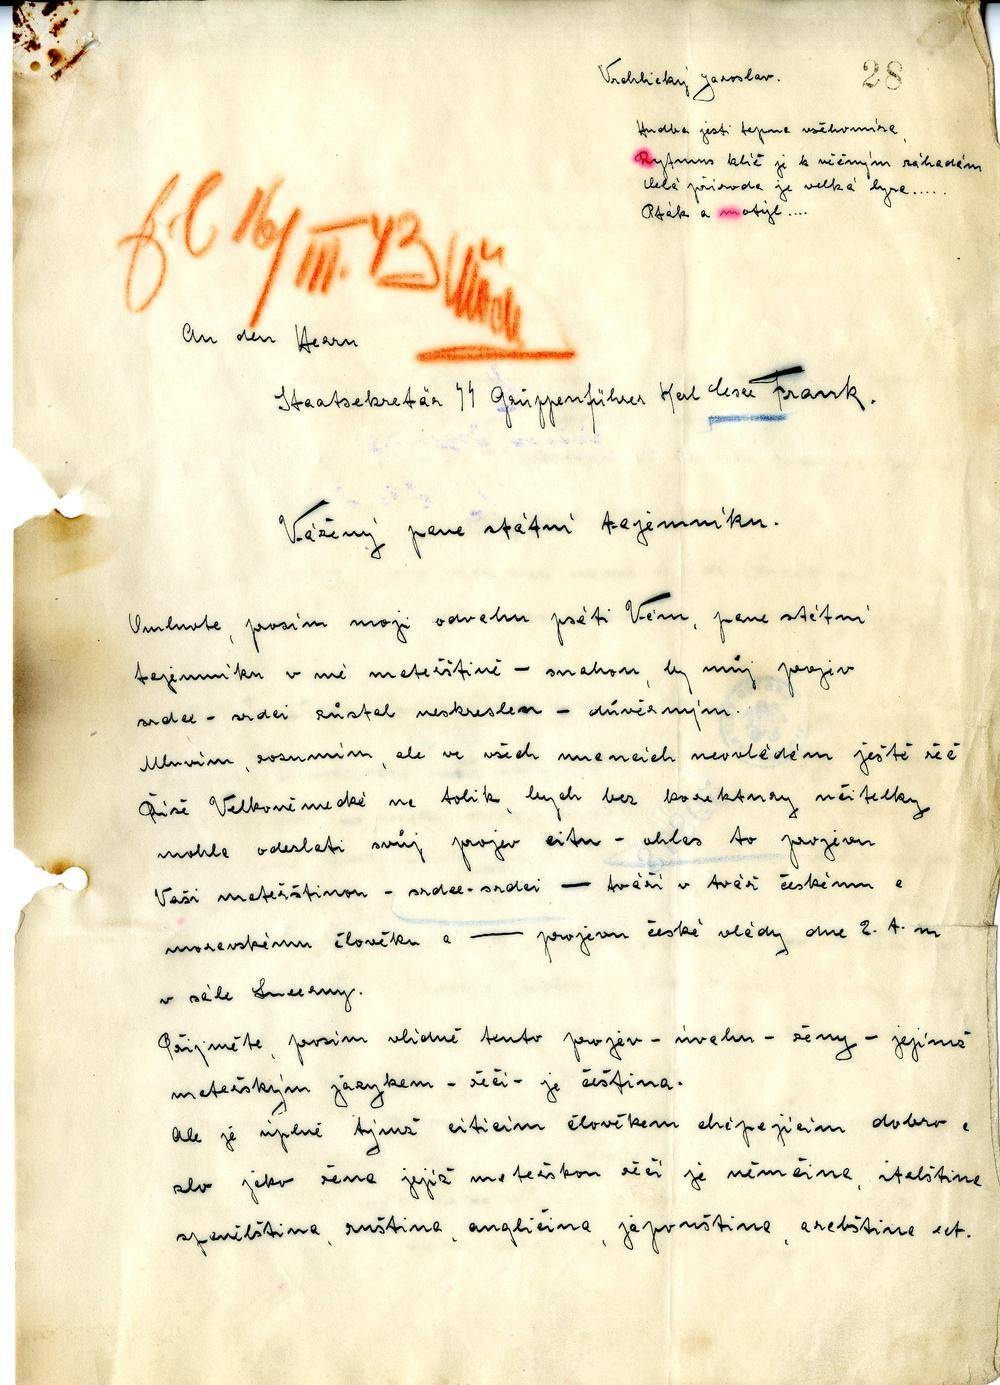 Vrchlický Jaroslav.
28
Hudba jesti tepna všehomíra,
Rytmus klíč je k věčným záhadám
Celá příroda je velká lyra.....
Pták a motýl....
16/III. 43
An den Herrn
Staatsekretär SS Gruppenführer Karl Frank.
Vážený pane státní tajemníku.
Omluvte, prosím moji odvahu psáti Vám, pane státní
tajemníku v mé mateřštině – snahou, by můj projev
srdce – srdci zůstal neskreslen – důvěrným.
Mluvím, rozumím, ale ve všech nuancích neovládám ještě řeč
Říše Velkoněmecké na tolik, bych bez korektury učitelky
mohla odeslati svůj projev citu – ohlas to projevu
Vaší mateřštinou – srdce-srdci — tváří v tvář českému a
moravskému člověku a — projevu české vlády dne 2. t. m
v sále Lucerny.
Přijměte, prosím vlídně tento projev – úvahu – ženy – jejímž
mateřským jazykem – řečí – je čeština.
Ale je úplně týmž cítícím člověkem chápajícím dobro a
zlo jako žena jejíž mateřskou řečí je němčina, italština
španělština, ruština, angličina, japonština, arabština ect.